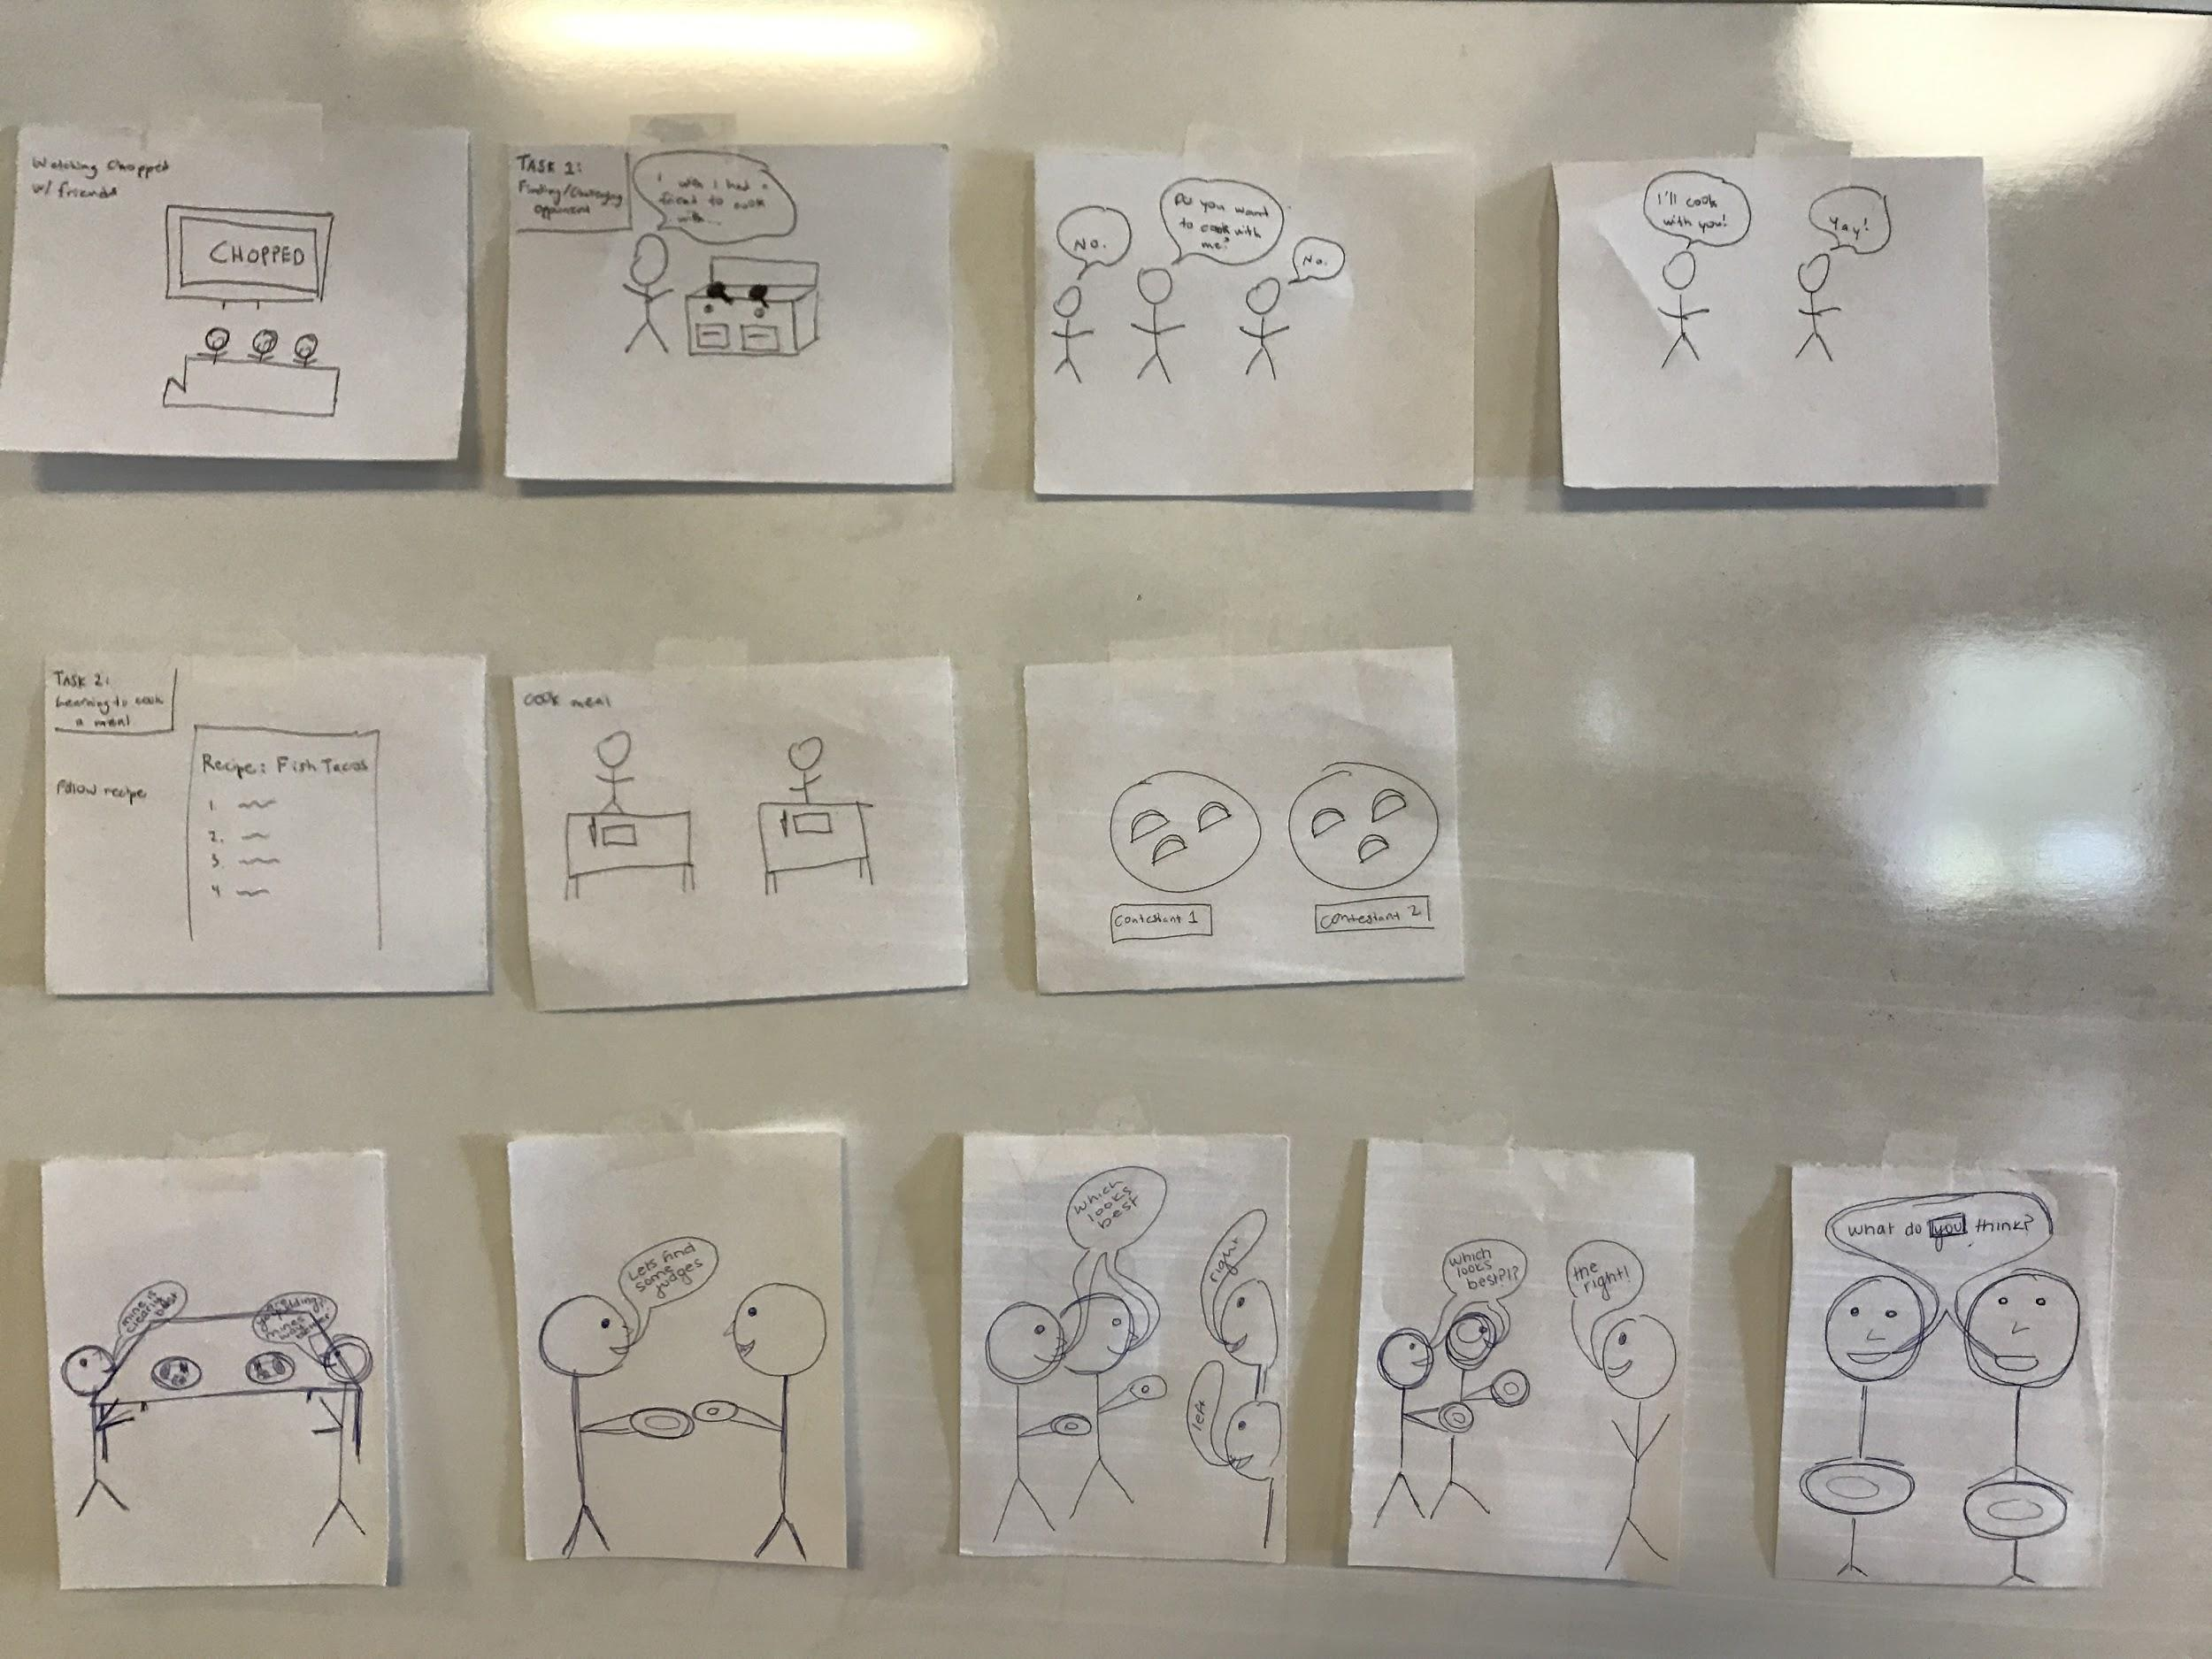 Watching Chopped
w/ friends
CHOPPED
TASK 1:
Finding/Challenging
opponent
I wish I had a
friend to cook
with...
No.
Do you want
to cook with
me?
No.
I'll cook
with you!
Yay!
TASK 2:
Learning to cook
a meal
Follow recipe
Recipe: Fish Tacos
1.
2.
3.
4
cook meal
Contestant 1
Contestant 2
mine is
clearly
best
kidding!
mines
way
Lets find
some
judges
which
looks
best
right
left
which
looks
best?!?
the
right!
what do you think?